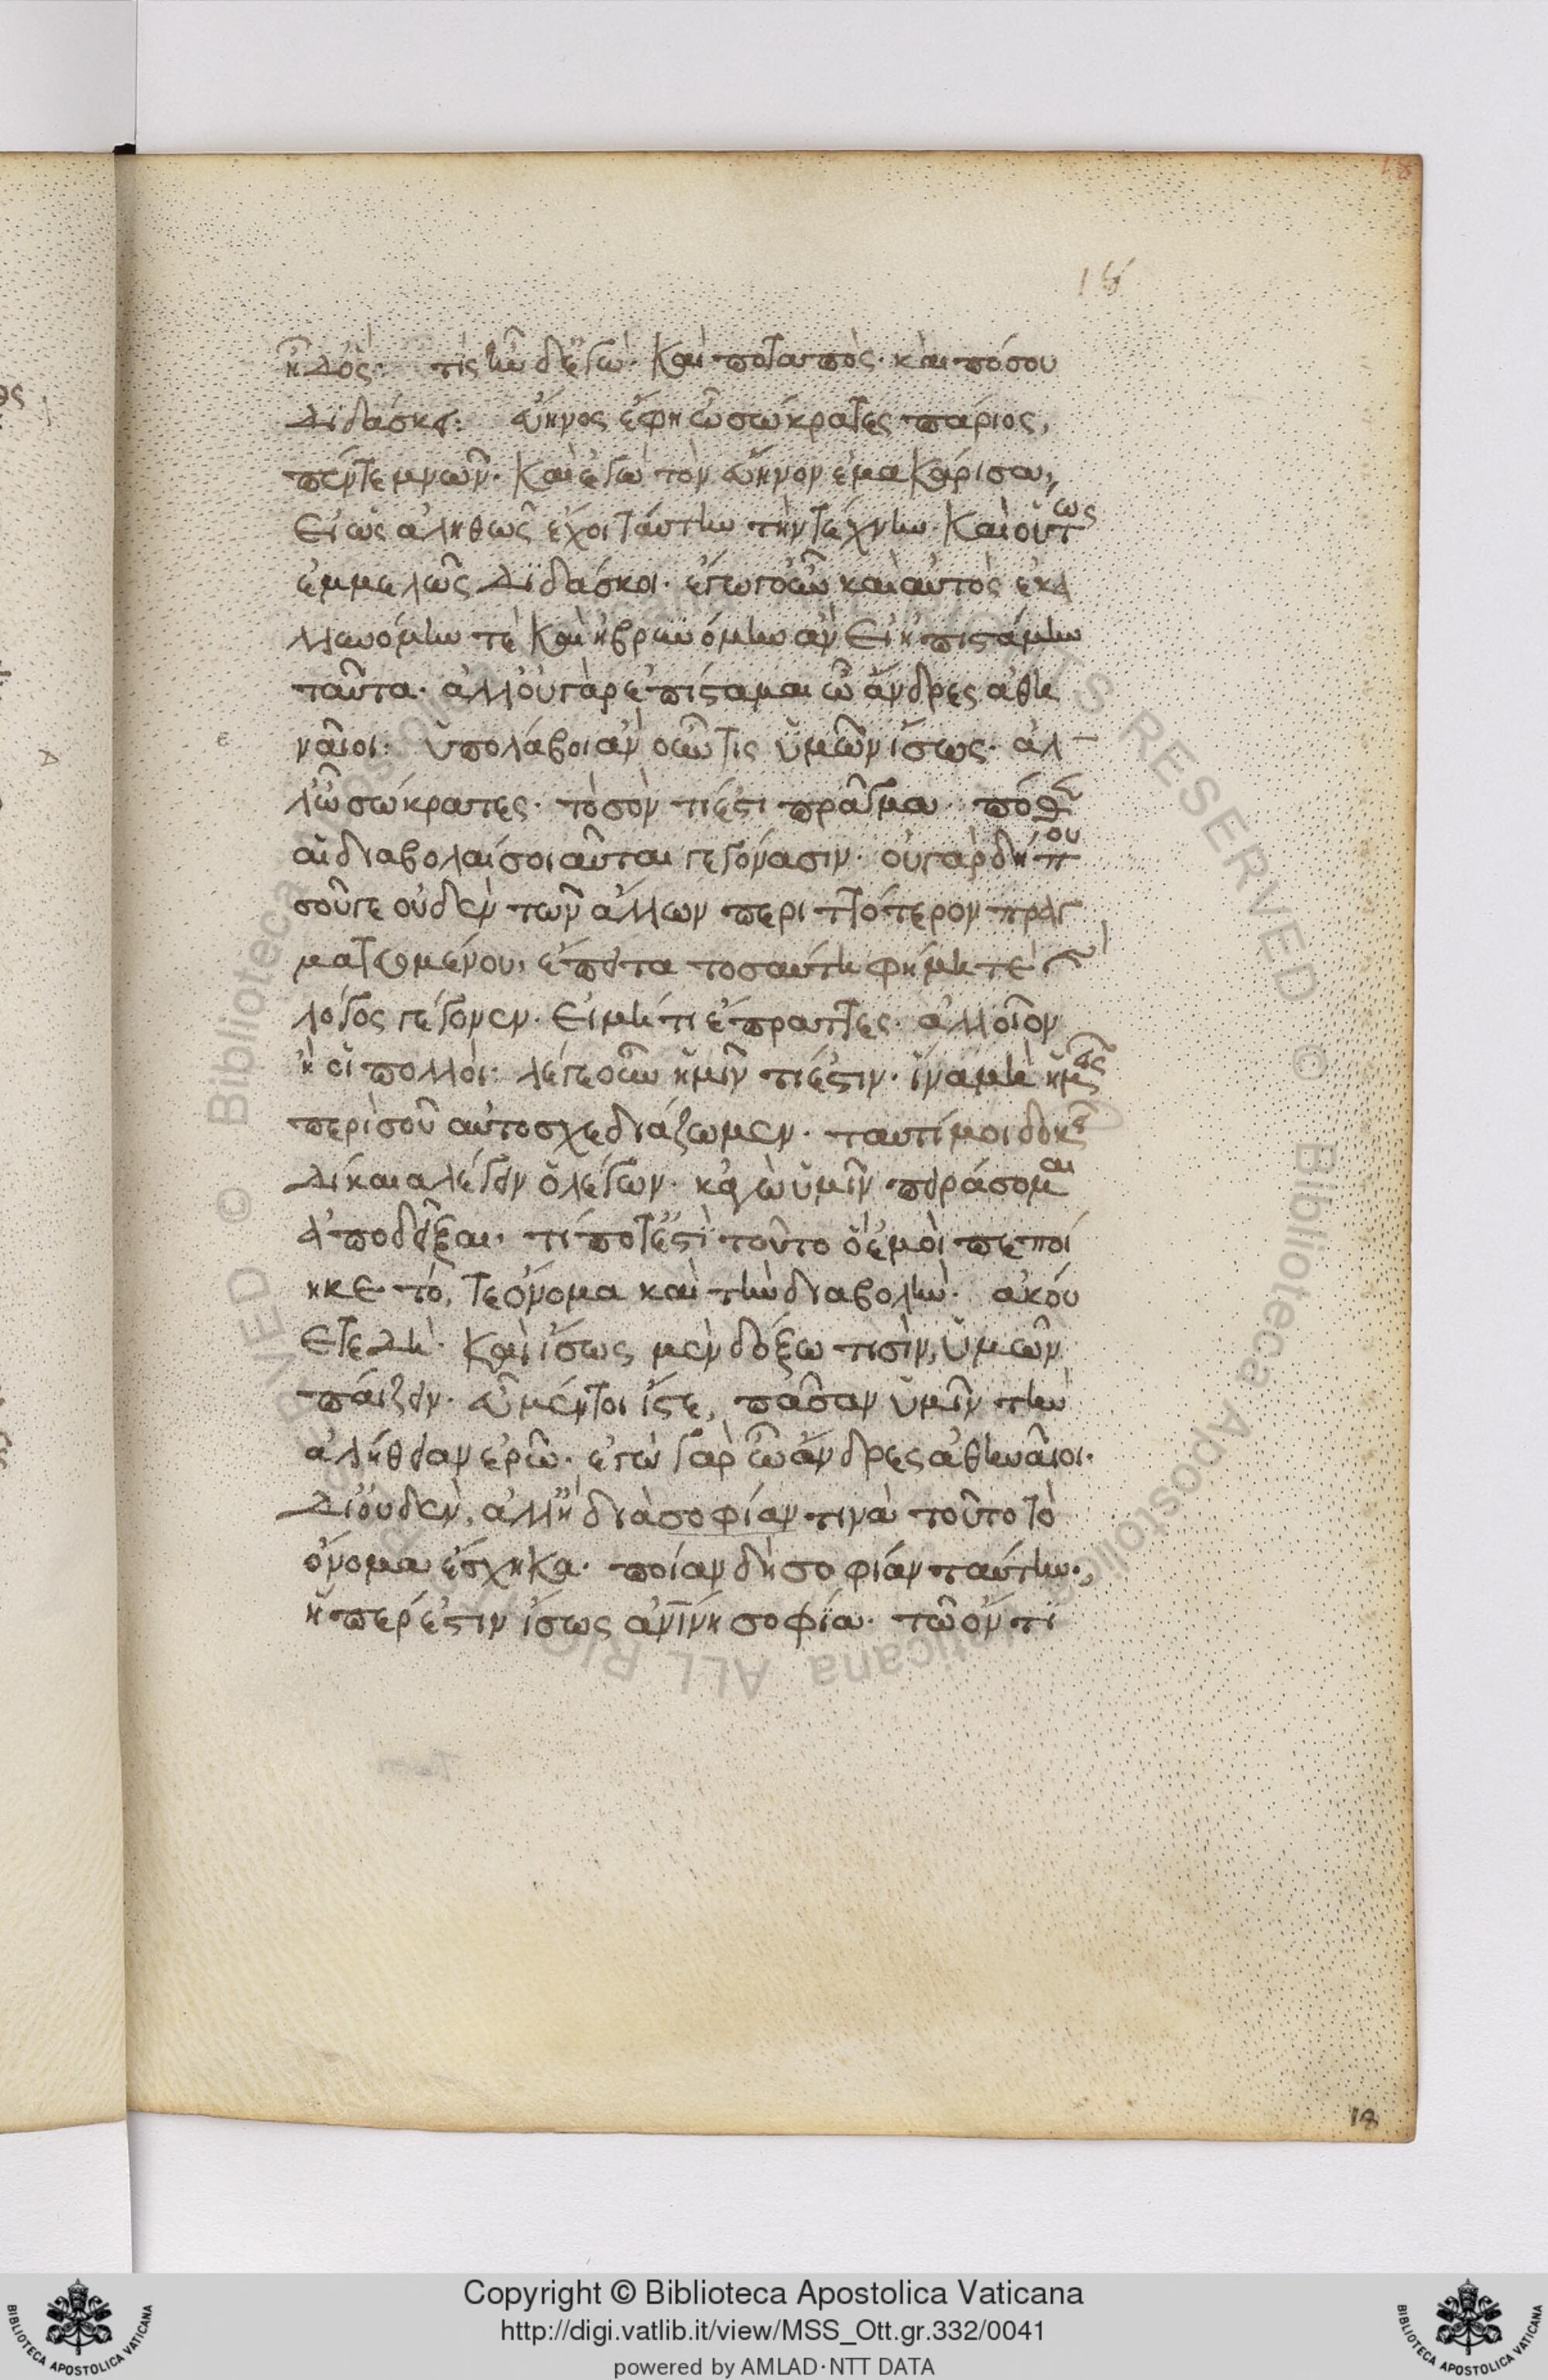 18
18
ἢ δ᾽ ὅς· τίς ἦν δ᾽ ἐγώ· Καὶ ποταπὸς· καὶ πόσου
διδάσκει: εὔηνος ἔφη ὦ σώκρατες πάριος,
πέντε μνῶν· Καὶ ἐγὼ τὸν εὔηνον ἐμακάρισα,
εἰ ὡς ἀληθῶς ἔχοι ταύτην τὴν τέχνην· Καὶ οὕτως
ἐμμελῶς διδάσκοι· ἐγωγοῦν καὶ αὐτὸς ἐκαλ
λυνόμην τὲ Καὶ ἡβρυνόμην ἂν εἰ ἠπιστάμην
ταῦτα· ἀλλ᾽ οὐ γὰρ ἐπίσταμαι ὦ ἄνδρες ἀθη
ναῖοι· ὑπολάβοι ἂν οὖν τὶς ὑμῶν ἴσως· ἀλ
λ᾽ ὦ σώκρατες· τὸ σὸν τί ἐστι πρᾶγμα· πόθεν
αἱ διαβολαί σοι αὗται γεγόνασιν· οὐ γὰρ δήπου
σοῦ γε οὐδὲν τῶν ἄλλων περιττότερον πραγ
ματευομένου, ἔπειτα τοσαύτη φήμη τὲ καὶ
λόγος γέγονεν· εἰ μή τι ἔπραττες· ἀλλοῖον
ἢ οἱ πολλοί· λέγε οὖν ἡμῖν τί ἐστιν· ἵνα μὴ ἡμεῖς
περὶ σοῦ αὐτοσχεδιάζωμεν· ταυτί μοι δοκεῖ
δίκαια λέγειν ὁ λέγων· κἀγὼ ὑμῖν πειράσομαι
ἀποδεῖξαι· τί ποτ᾽ ἐστὶ τοῦτο ὃ ἐμοὶ πεποί
ηκε τό, τε ὄνομα καὶ τὴν διαβολήν· ἀκού
ετε δή· Καὶ ἴσως μὲν δόξω τισὶν, ὑμῶν
παίζειν· εὖ μέντοι ἴστε, πᾶσαν ὑμῖν τὴν
ἀλήθειαν ἐρῶ· ἐγὼ γὰρ ὦ ἄνδρες ἀθηναῖοι·
δι᾽ οὐδὲν, ἀλλ᾽ ἢ διὰ σοφίαν τινὰ τοῦτο τὸ
ὄνομα ἔσχηκα· ποίαν δὴ σοφίαν ταύτην·,
ἥπερ ἐστιν ἴσως ἀνίνη σοφία· τῶ ὄντι
18
Copyright © Biblioteca Apostolica Vaticana
http://digi.vatlib.it/view/MSS_Ott.gr.332/0041
powered by AMLAD·NTT DATA